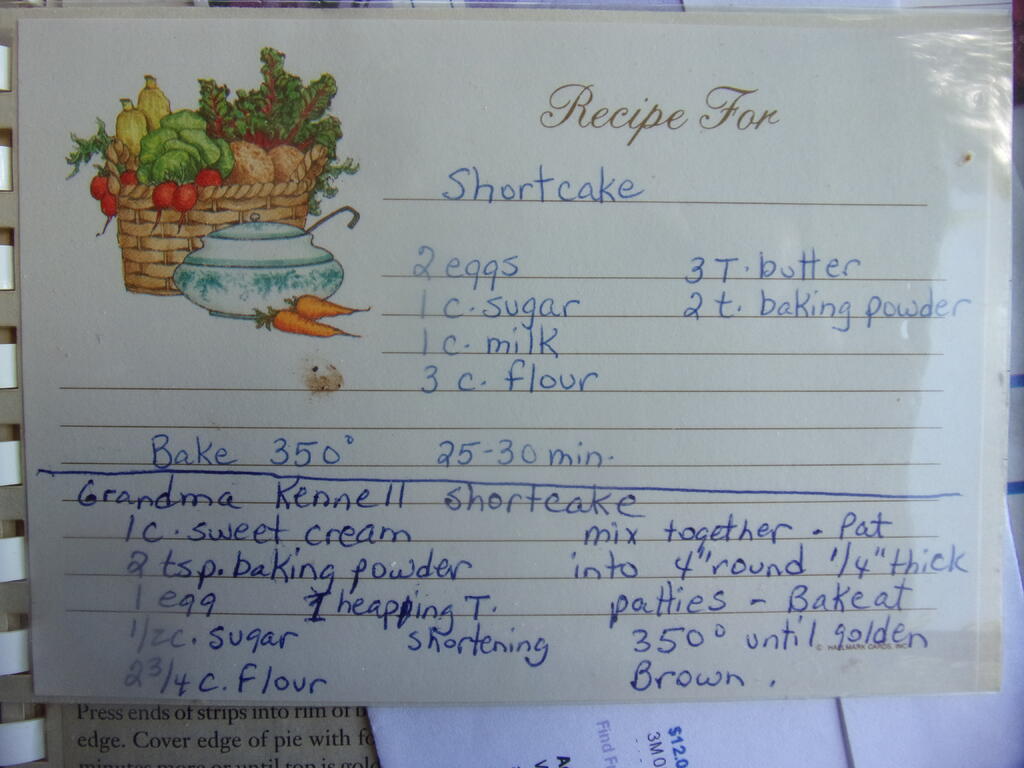 Recipe For
Shortcake
2 eggs 3 T. butter
1 c. sugar 2 t. baking powder
1 c. milk
3 c. flour
Bake 350° 25-30 min.
Grandma Kennell shortcake
1 c. sweet cream mix together - Pat
2 tsp. baking powder into 4" round 1/4" thick
1 egg 1 heapping T. patties - Bake at
1/2 c. sugar shortening 350° until golden
© HALLMARK CARDS, INC.
2 3/4 c. flour Brown.
Press ends of strips into rim of
edge. Cover edge of pie with
minutes more or until top is
Find
$12.0
3M0